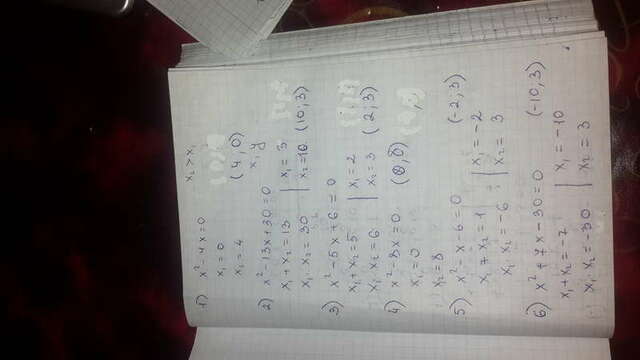 x₂ > x₁
1) x² - 4x = 0
x₁ = 0
x₂ = 4 (4; 0)
x, y
2) x² - 13x + 30 = 0
x₁ + x₂ = 13 | x₁ = 3
x₁ · x₂ = 30 | x₂ = 10 (10; 3)
3) x² - 5x + 6 = 0
x₁ + x₂ = 5 | x₁ = 2
x₁ · x₂ = 6 | x₂ = 3 (2; 3)
4) x² - 8x = 0
x₁ = 0
x₂ = 8
5) x² - x - 6 = 0 (-2; 3)
x₁ + x₂ = 1 | x₁ = -2
x₁ · x₂ = -6 | x₂ = 3
6) x² + 7x - 30 = 0 (-10; 3)
x₁ + x₂ = -7 | x₁ = -10
x₁ · x₂ = -30 | x₂ = 3